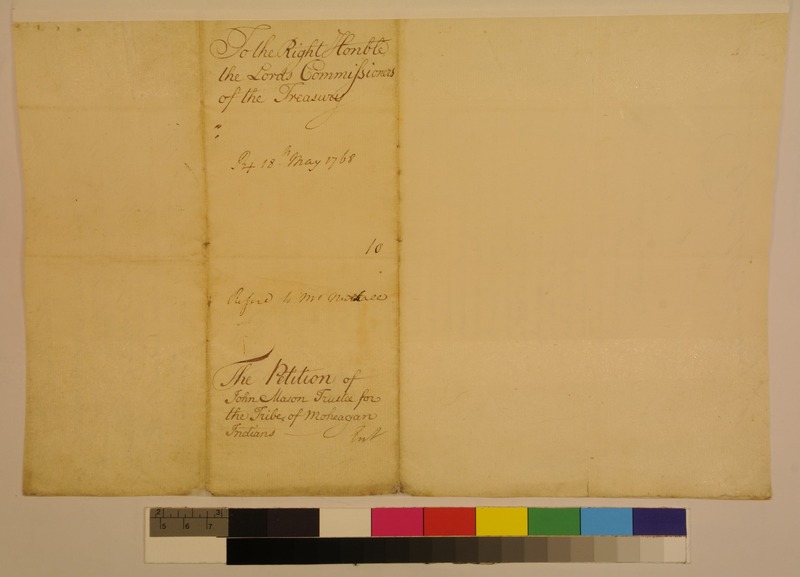 To the Right Honble
the Lords Commissioners
of the Treasury
18th May 1768
10
to Mr
The Petition of
John Mason Trustee for
the Tribe of Moheagan
Indians